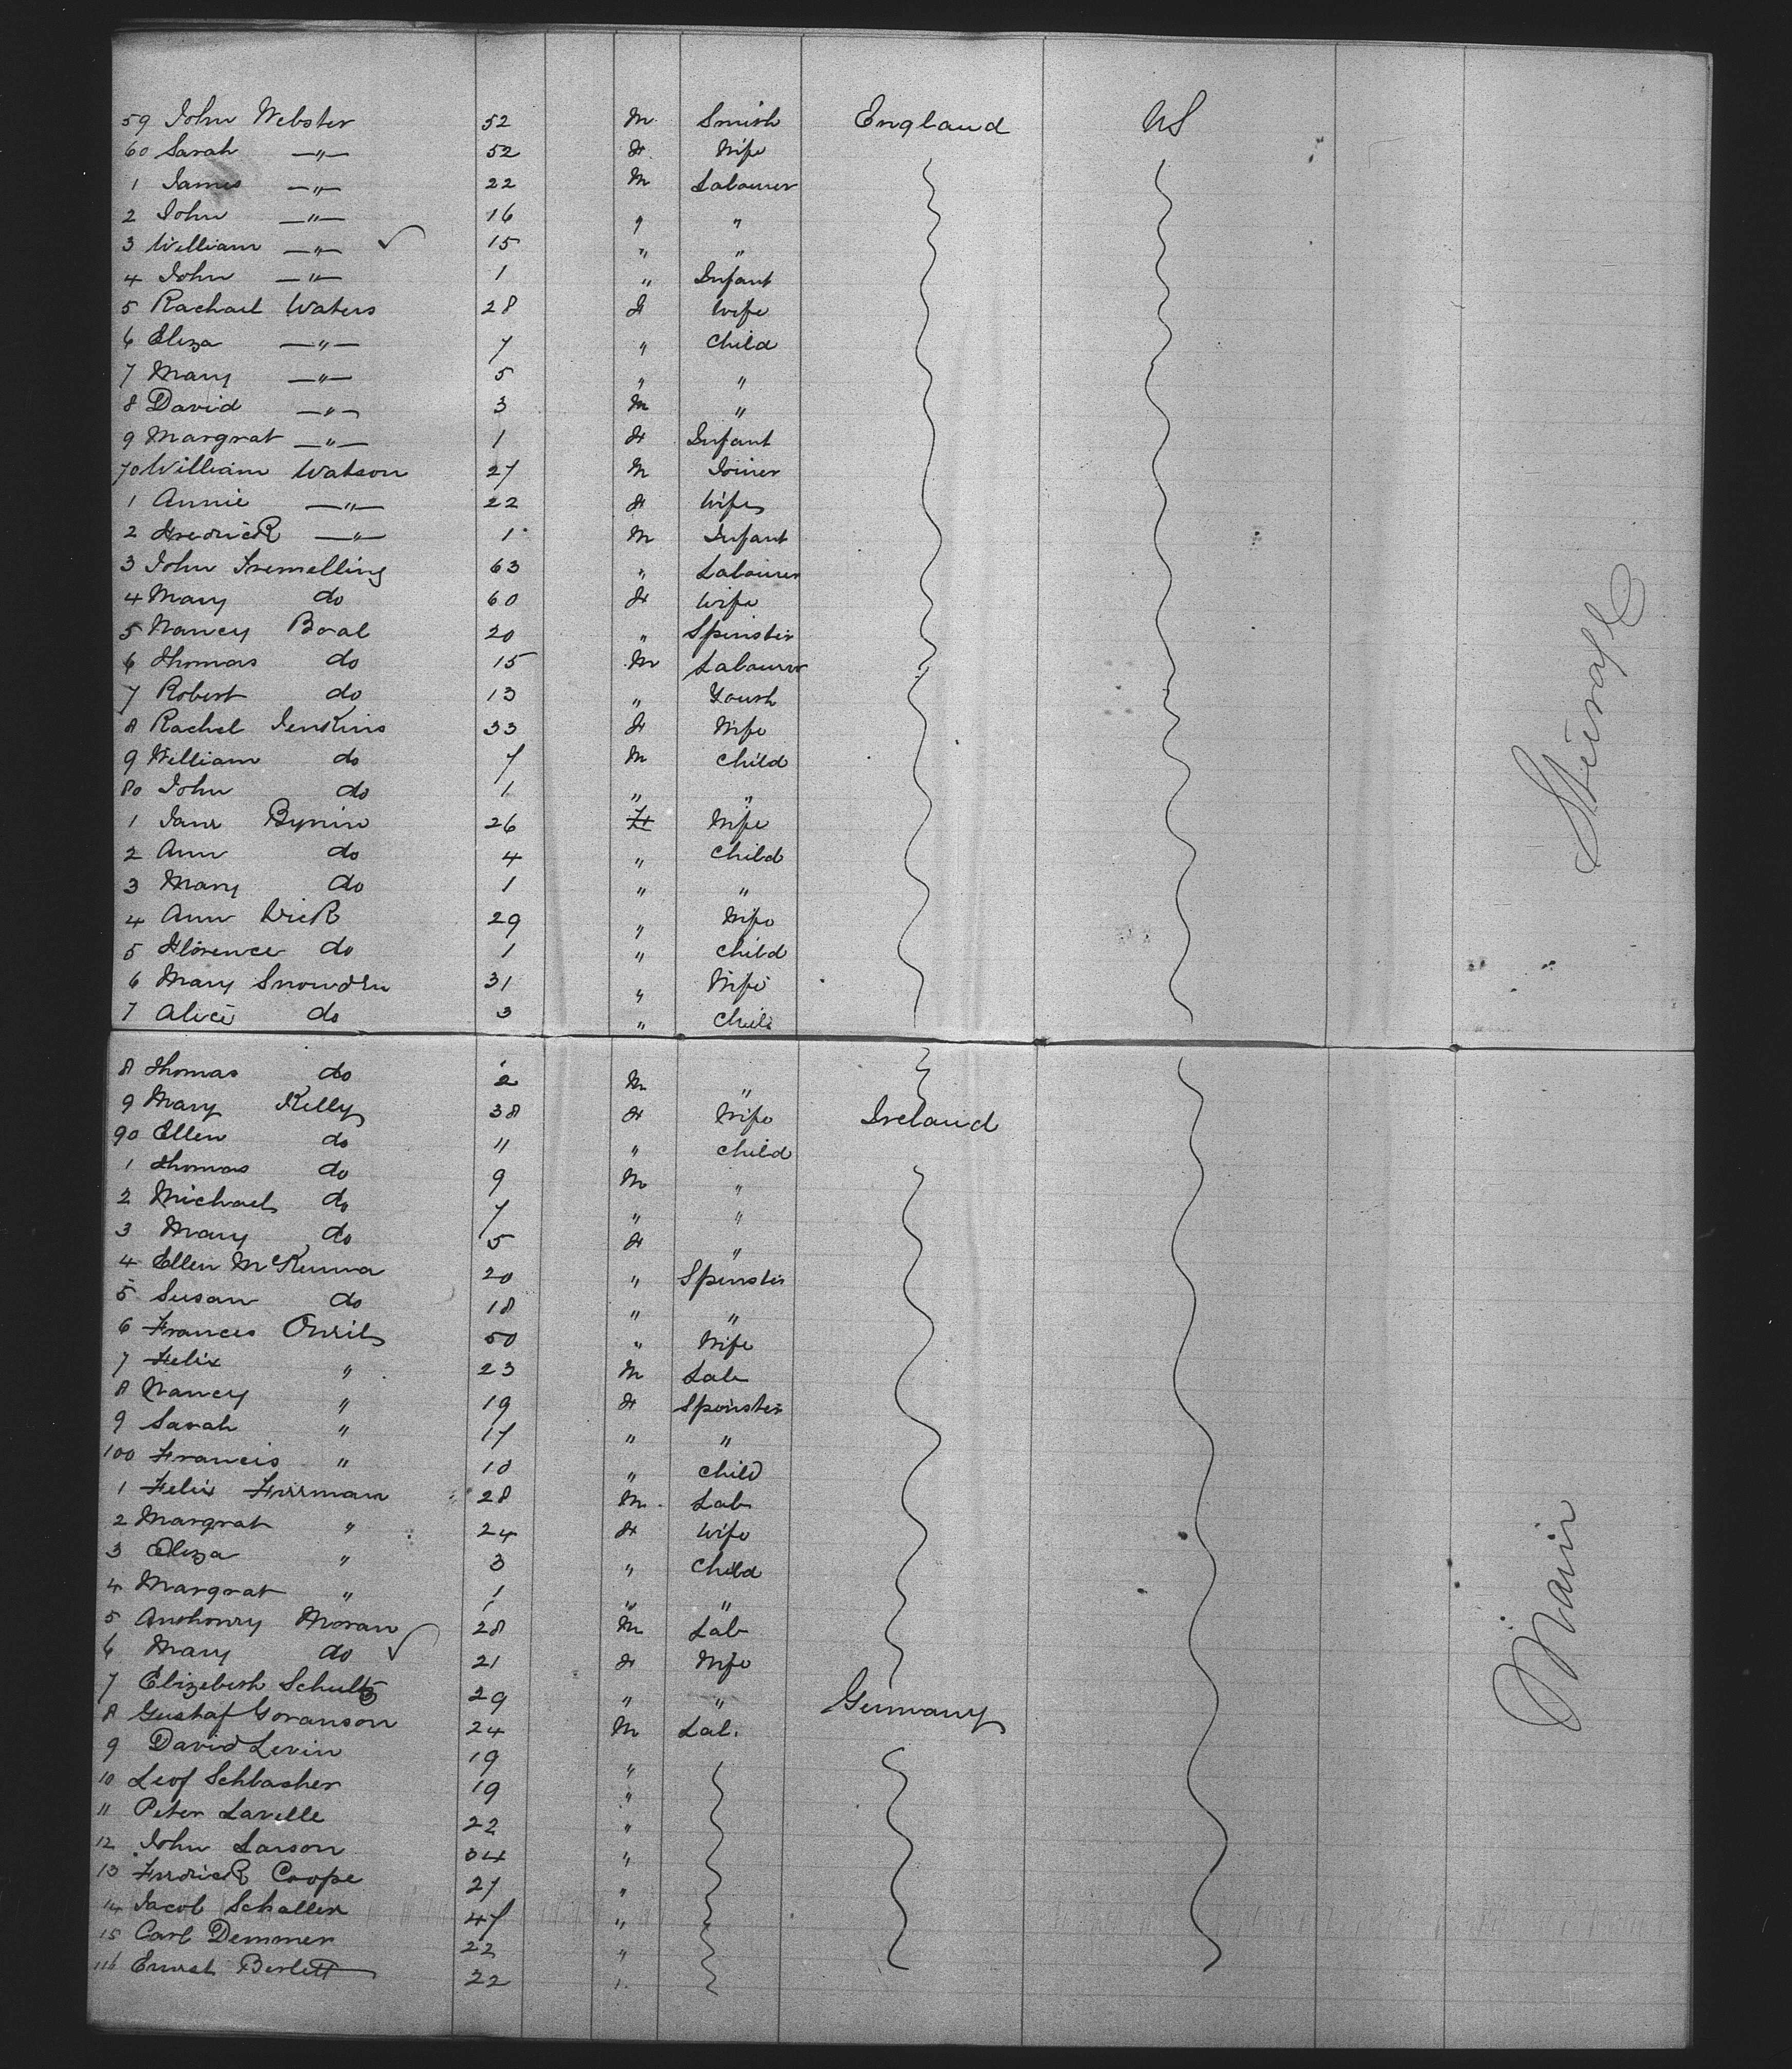 59 John Webster 52 M Smith England US
60 Sarah —"— 52 F Wife
1 James —"— 22 M Labourer
2 John —"— 16 " "
3 William —"— ✓ 15 " "
4 John —"— 1 " Infant
5 Rachael Waters 28 F Wife
6 Eliza —"— 7 " Child
7 Mary —"— 5 " "
8 David —"— 3 M "
9 Margrat —"— 1 F Infant
70 William Watson 27 M Joiner
1 Annie —"— 22 F Wife
2 Fredrick —"— 1 M Infant
3 John Tremelling 63 " Labourer
4 Mary do 60 F Wife
5 Nancy Boal 20 " Spinster
6 Thomas do 15 M Labourer
7 Robert do 13 " Youth
8 Rachel Jenkins 33 F Wife
9 William do 7 M Child
80 John do 1 " "
1 Jane 26 F Wife
2 Ann do 4 " Child
3 Mary do 1 " "
4 Ann Wick 29 " Wife
5 Florence do 1 " Child
6 Mary Snowden 31 " Wife
7 Alice do 3 " Child
8 Thomas do 2 M "
9 Mary Kelly 38 F Wife Ireland
90 Ellen do 11 " Child
1 Thomas do 9 M "
2 Michael do 7 " "
3 Mary do 5 F "
4 Ellen McKenna 20 " Spinster
5 Susan do 18 " "
6 Frances Oneil 50 " Wife
7 Felix " 23 M Lab
8 Nancy " 19 F Spinster
9 Sarah " 17 " "
100 Francis " 10 " Child
1 Felix 28 M Lab
2 Margrat " 24 F Wife
3 Eliza " 3 " Child
4 Margrat " 1 " "
5 Anthonry Moran 28 M Lab
6 Mary do ✓ 21 F Wife
7 Elizebeth Schultz 29 " " Germany
8 Gustaf Goranson 24 M Lab.
9 David Levin 19 "
10 Leof Schlasher 19 "
11 Peter Lavelle 22 "
12 John Larson 34 "
13 Fredrick Coope 27 "
14 Jacob Schaller 47 "
15 Carl Demmer 22 "
116 Ernest Berlett 22 "
Steerage
Main